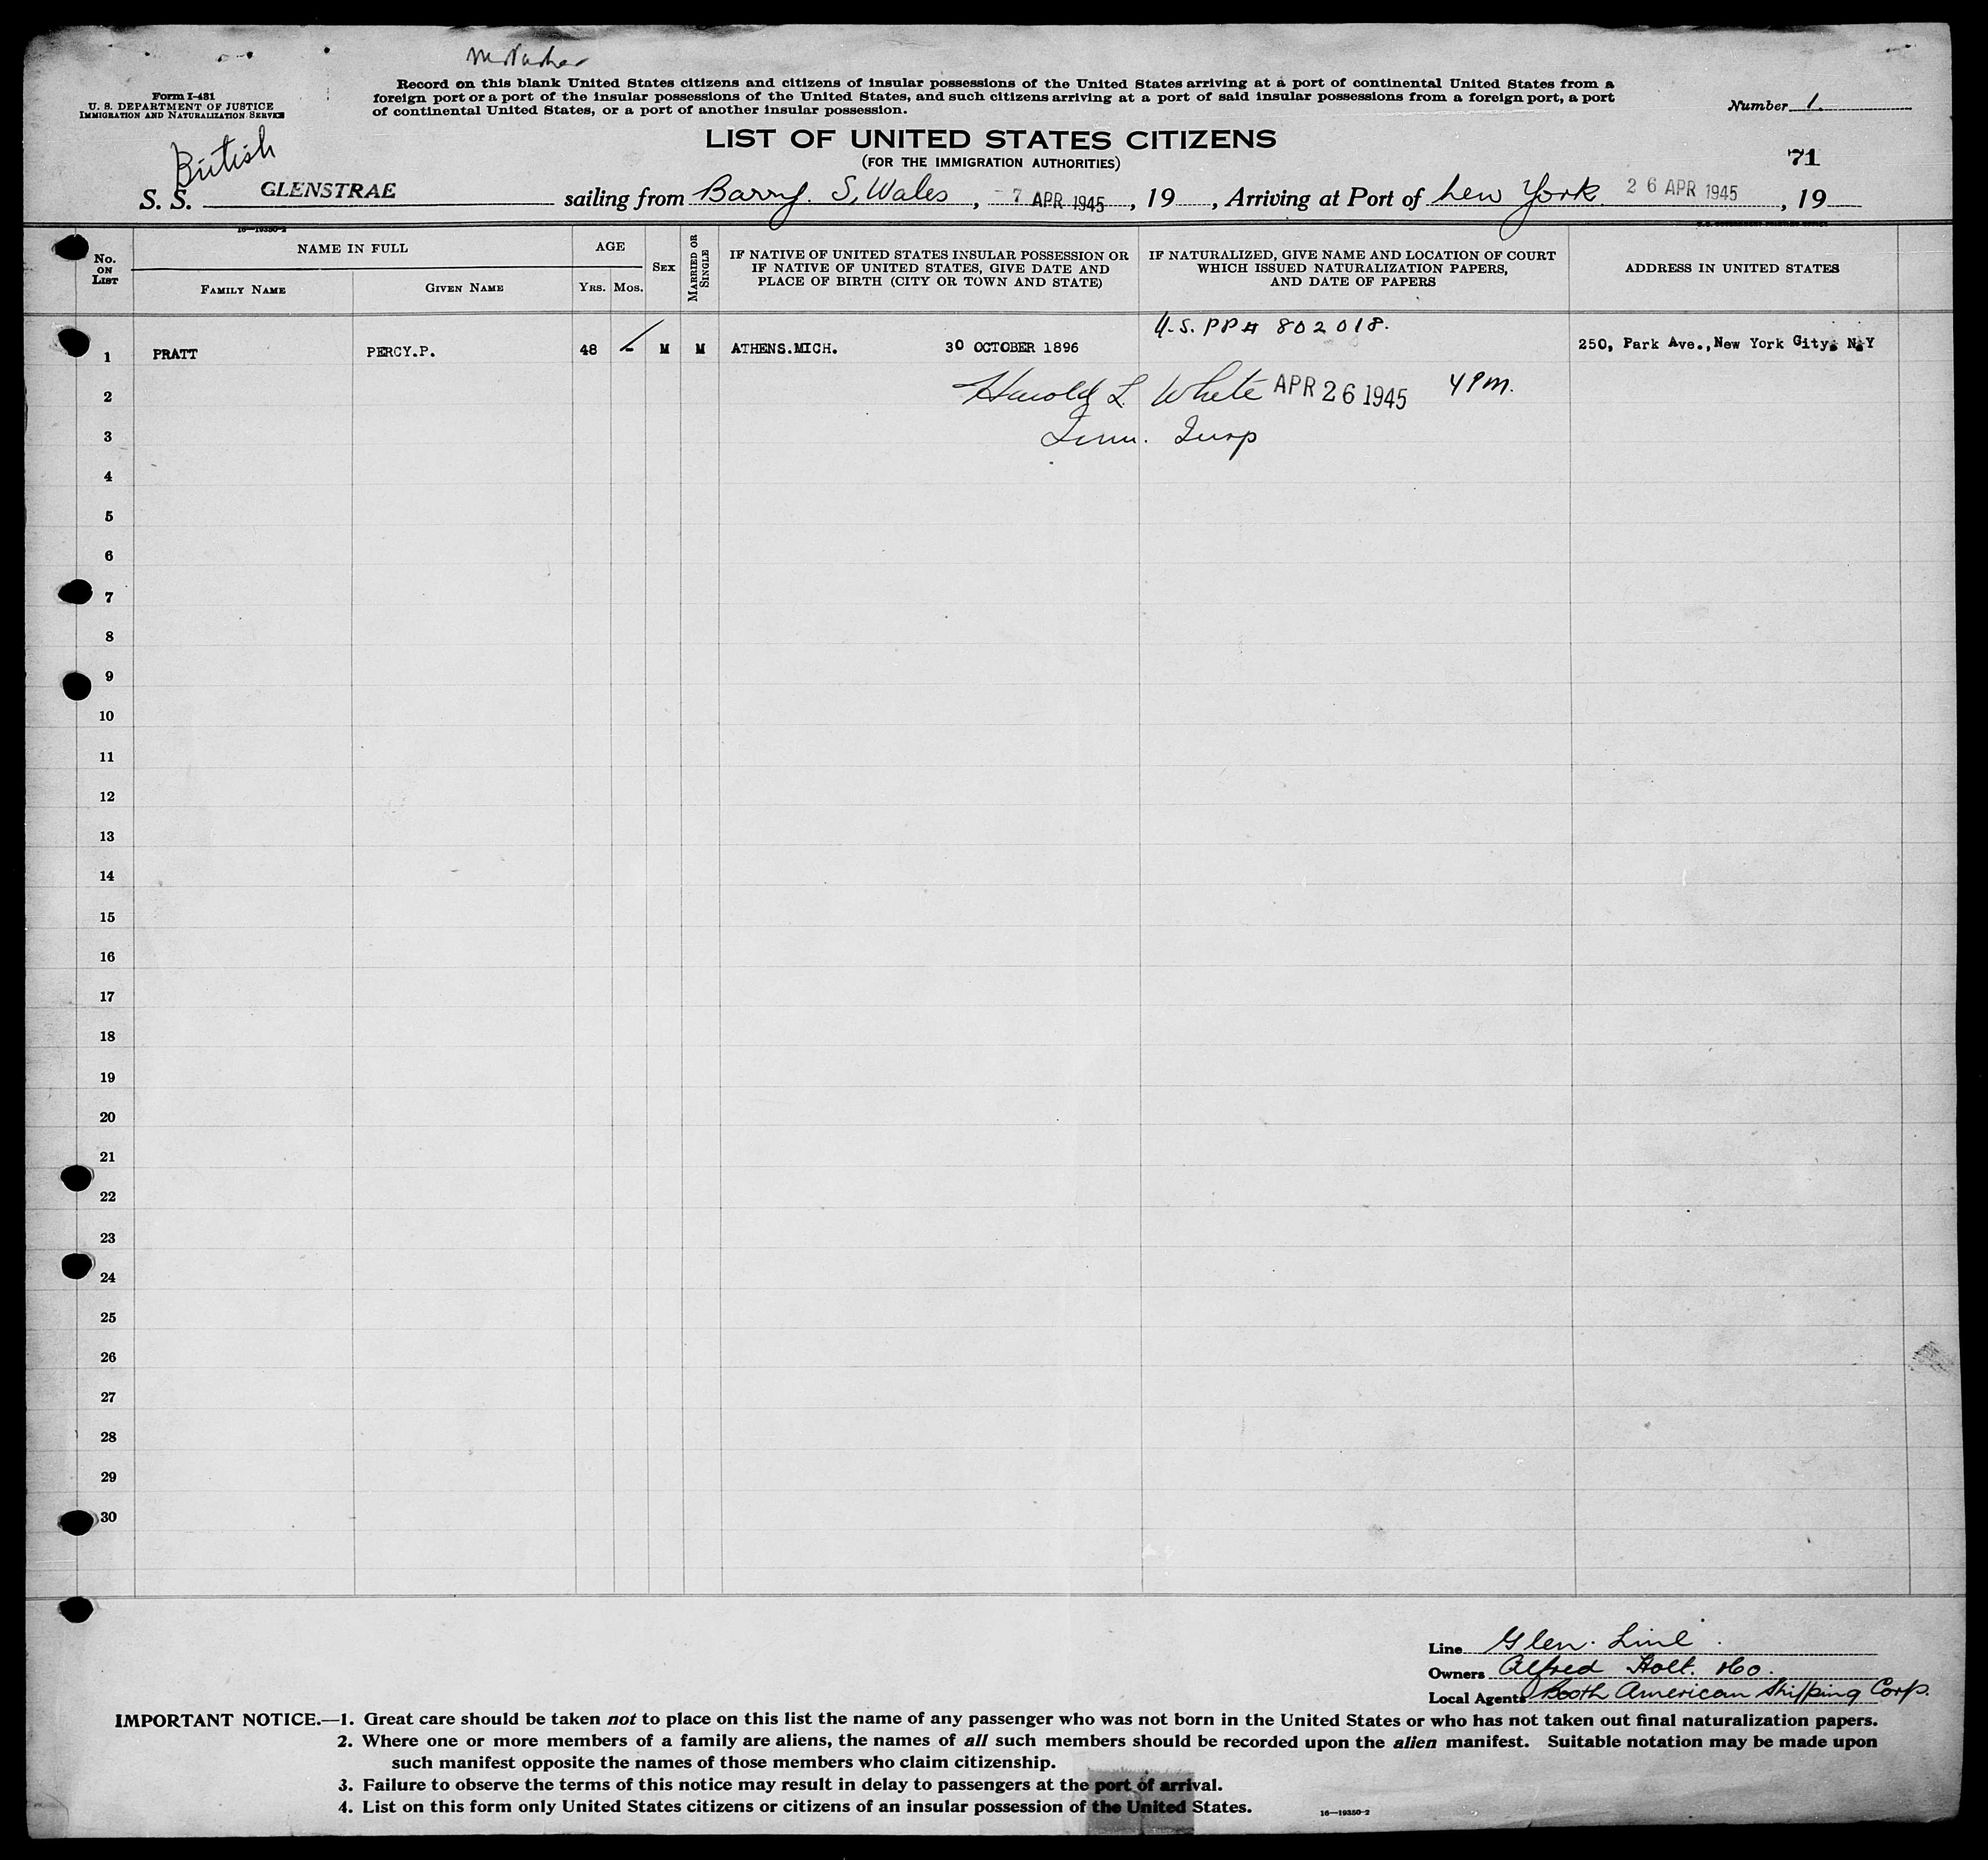 Form I-431
U. S. DEPARTMENT OF JUSTICE
IMMIGRATION AND NATURALIZATION SERVICE
Record on this blank United States citizens and citizens of insular possessions of the United States arriving at a port of continental United States from a
foreign port or a port of the insular possessions of the United States, and such citizens arriving at a port of said insular possessions from a foreign port, a port
of continental United States, or a port of another insular possession.
Number 1.
LIST OF UNITED STATES CITIZENS
(FOR THE IMMIGRATION AUTHORITIES)
71
British
S. S. GLENSTRAE sailing from Barry. S. Wales, 7 APR 1945, 19, Arriving at Port of New York. 26 APR 1945, 19
16—19350-2
No. ON LIST
NAME IN FULL
FAMILY NAME
GIVEN NAME
AGE
YRS.
MOS.
SEX
MARRIED OR SINGLE
IF NATIVE OF UNITED STATES INSULAR POSSESSION OR
IF NATIVE OF UNITED STATES, GIVE DATE AND
PLACE OF BIRTH (CITY OR TOWN AND STATE)
IF NATURALIZED, GIVE NAME AND LOCATION OF COURT
WHICH ISSUED NATURALIZATION PAPERS,
AND DATE OF PAPERS
ADDRESS IN UNITED STATES
U.S. PP# 802018.
1 PRATT PERCY.P. 48 - M M ATHENS.MICH. 30 OCTOBER 1896 250, Park Ave.,New York City. N.Y
2 Harold L. White APR 26 1945 4 PM.
3 Imm. Insp
4
5
6
7
8
9
10
11
12
13
14
15
16
17
18
19
20
21
22
23
24
25
26
27
28
29
30
Line Glen. Line.
Owners Alfred Holt. &Co.
Local Agents Booth American Shipping Corp.
IMPORTANT NOTICE.—1. Great care should be taken not to place on this list the name of any passenger who was not born in the United States or who has not taken out final naturalization papers.
2. Where one or more members of a family are aliens, the names of all such members should be recorded upon the alien manifest. Suitable notation may be made upon
such manifest opposite the names of those members who claim citizenship.
3. Failure to observe the terms of this notice may result in delay to passengers at the port of arrival.
4. List on this form only United States citizens or citizens of an insular possession of the United States.
16—19350-2